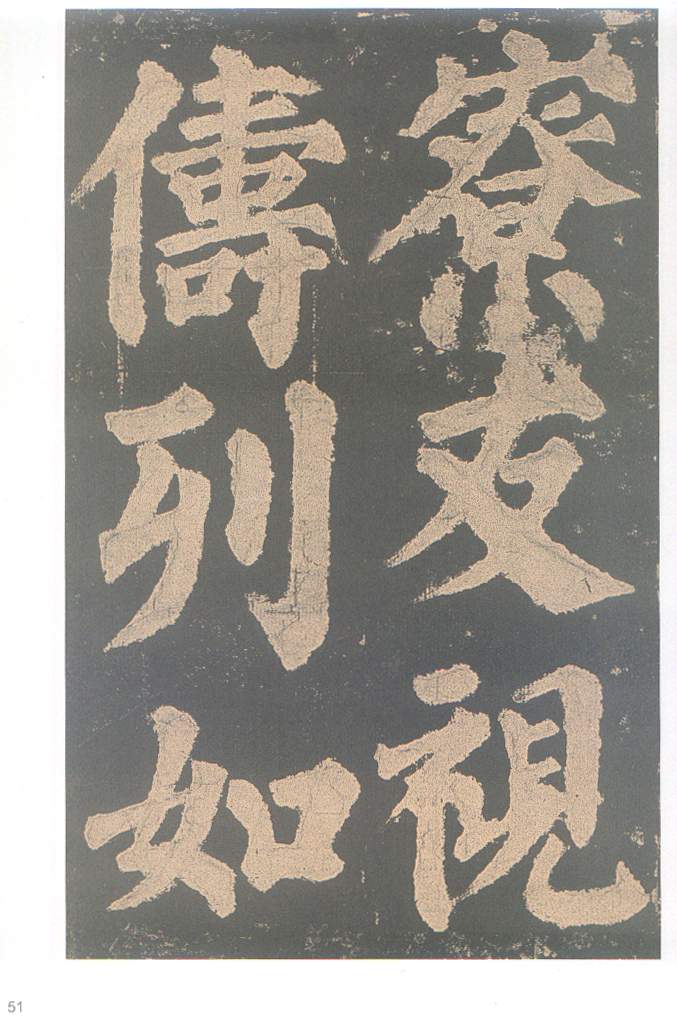 寮友視
儔列如
51